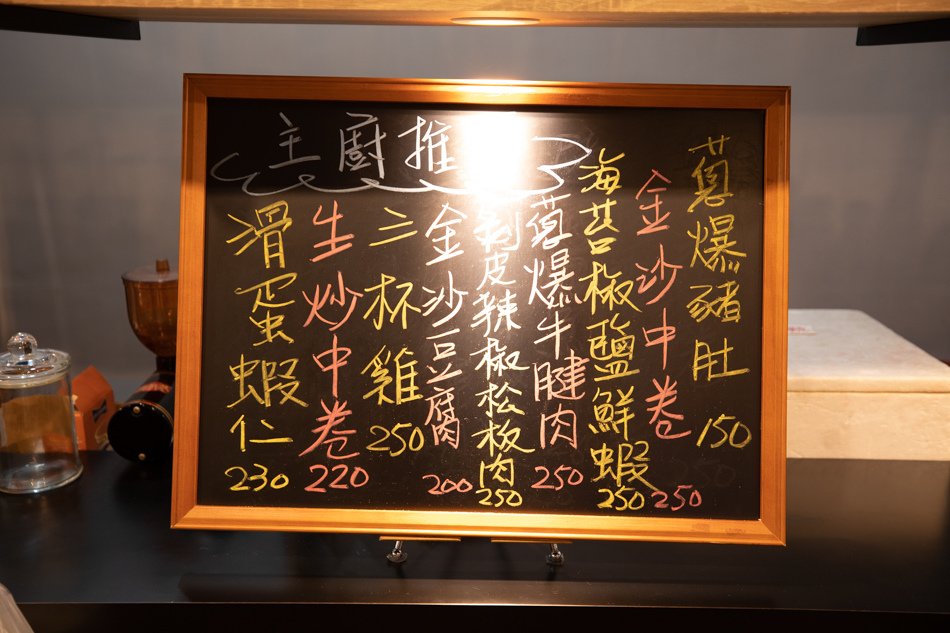 主廚推
蔥爆豬肚 150
金沙中卷 250
海苔椒鹽鮮蝦 250
蔥爆牛腱肉 250
剝皮辣椒松板肉 250
金沙豆腐 200
三杯雞 250
生炒中卷 220
滑蛋蝦仁 230